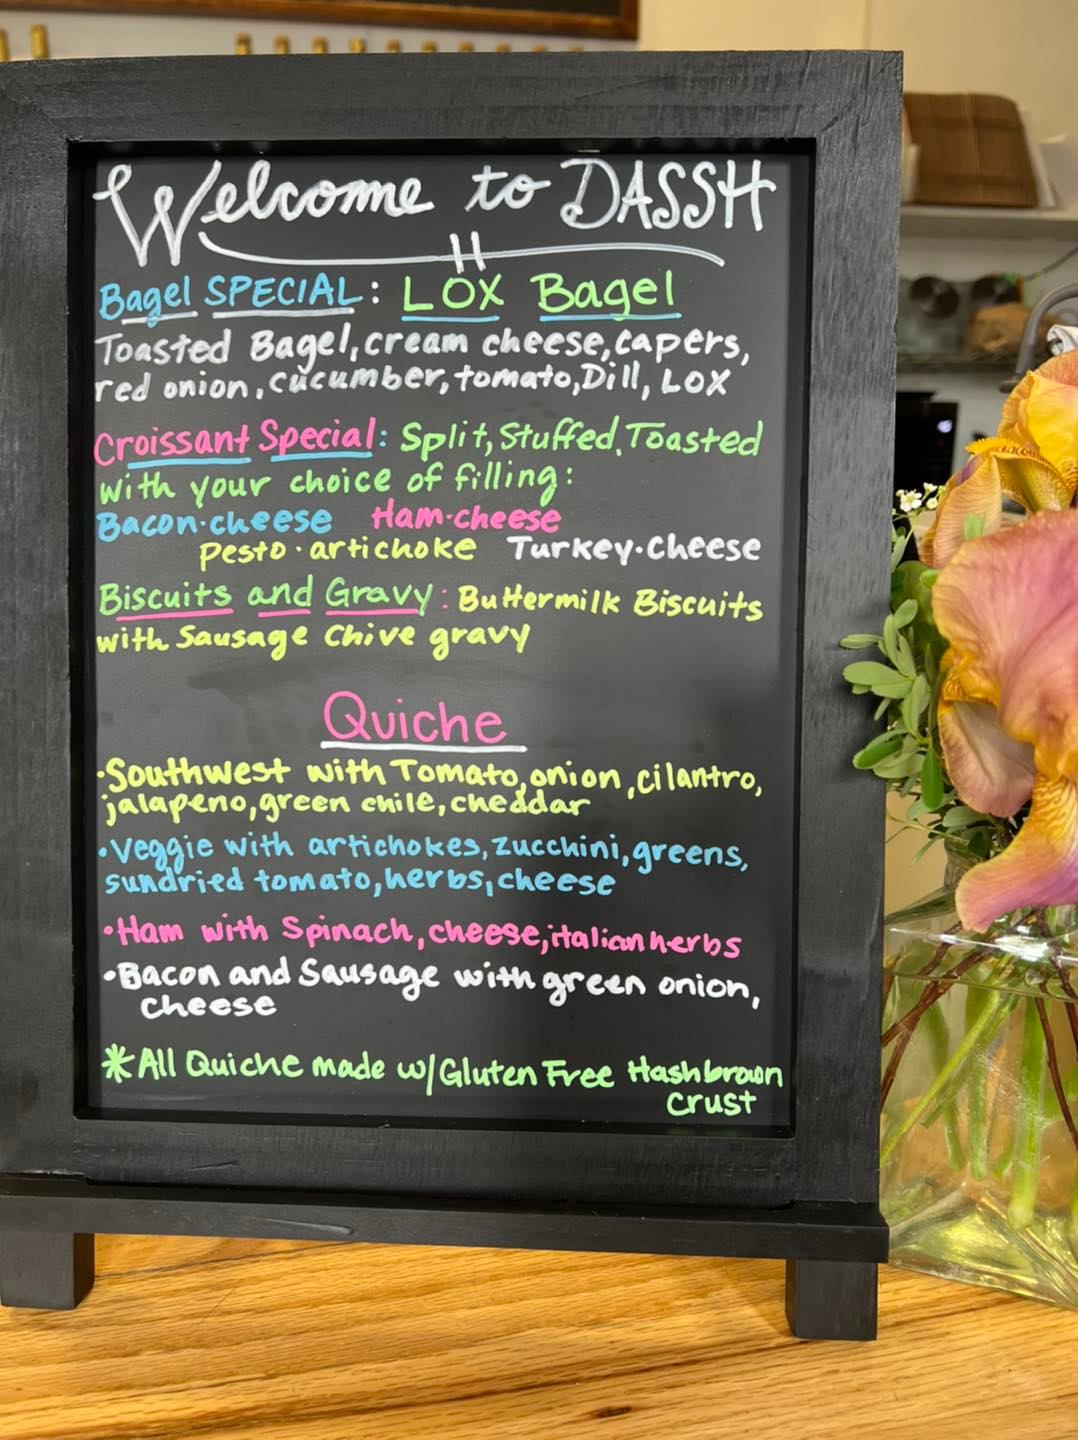 Welcome to DASSH
Bagel SPECIAL: LOX Bagel
Toasted Bagel, cream cheese, capers,
red onion, cucumber, tomato, Dill, LOX
Croissant Special: Split, Stuffed, Toasted
with your choice of filling:
Bacon·cheese Ham·cheese
pesto·artichoke Turkey·cheese
Biscuits and Gravy: Buttermilk Biscuits
with Sausage Chive gravy
Quiche
·Southwest with Tomato, onion, cilantro,
jalapeno, green chile, cheddar
·Veggie with artichokes, zucchini, greens,
sundried tomato, herbs, cheese
·Ham with Spinach, cheese, italian herbs
·Bacon and Sausage with green onion,
cheese
*All Quiche made w/Gluten Free Hashbrown
Crust